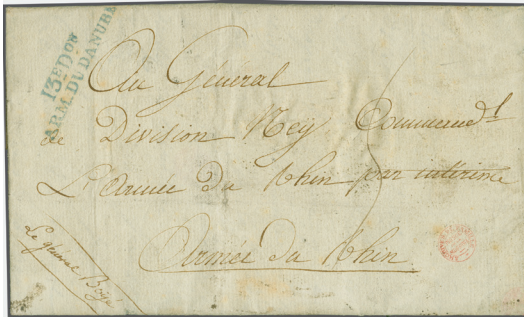 13E Don
ARM. DU DANUBE
Au Général
de Division Ney Commend.t
L'armée du Rhin par interime
Armée du Rhin
Le général